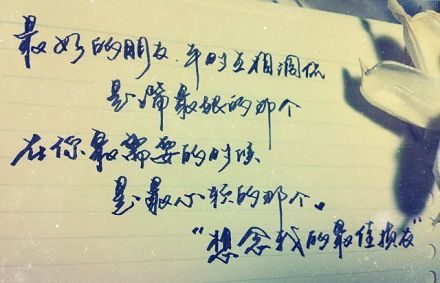 最好的朋友.平时互相调侃
是嘴最狠的那个
在你最需要的时候
是最心软的那个。
“想念我的最佳损友”